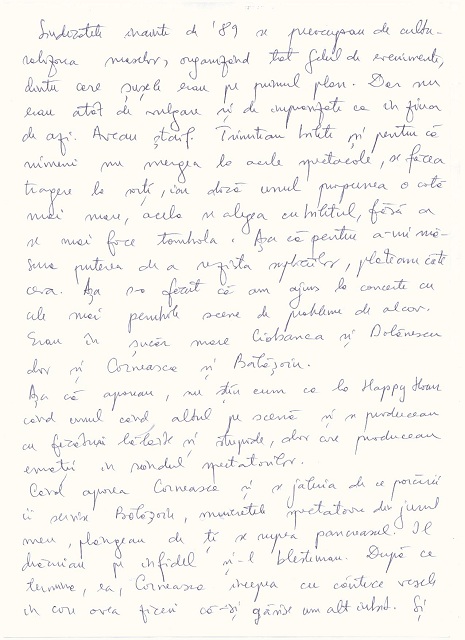 Sindicatele înainte de '89 se preocupau de cultu-
ralizarea maselor, organizând tot felul de evenimente,
dintre care șușele erau pe primul plan. Dar nu
erau atât de vulgare și de împănate ca în ziua
de azi. Aveau ștaif. Trimiteau bilete și pentru că
nimeni nu mergea la acele spectacole, se făcea
tragere la sorți, iar dacă unul propunea o cotă
mai mare, acela se alegea cu biletul, fără a
se mai face tombola. Așa că pentru a-mi mă-
sura puterea de a rezista supliciilor, plăteam cât
cerea. Așa s-a făcut că am ajuns la concerte cu
cele mai penibile scene de probleme de alcov.
Erau în șucăr mare Ciobanca și Dolănescu
dar și Corneasca și Bălășoiu.
Așa că apăreau, nu știu cum ca la Happy Hour
când unul când altul pe scenă și se produceau
cu și stupide, dar care produceau
emoții în rândul spectatorilor.
Când apărea Corneasca și se jeluia de ce porcării
îi servise Bălășoiu, muieretele spectatoare din jurul
meu, plângeau de ți se rupea pancreasul. Îl
drăcuiau pe infidel și-l blestemau. După ce
termina, ea, Corneasca începea cu cântece vesele
în care avea fițe că-și găsise un alt iubit. Și